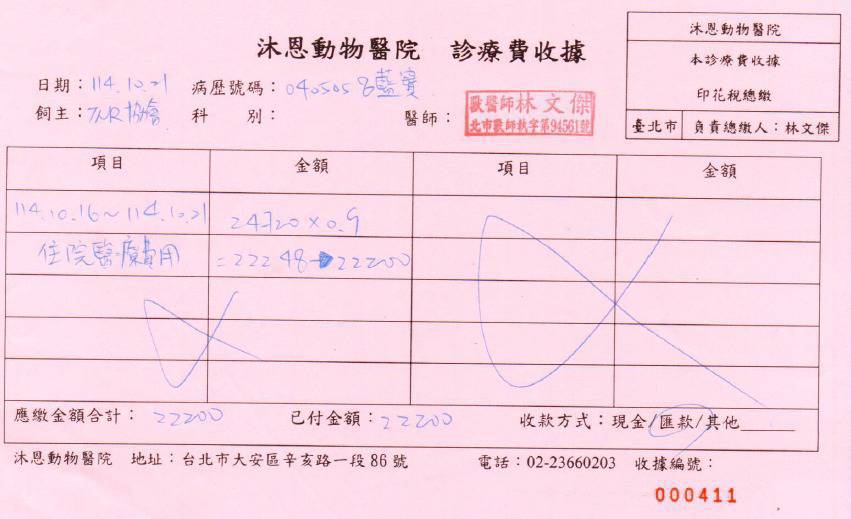 沐恩動物醫院 診療費收據
沐恩動物醫院
本診療費收據
印花稅總繳
臺北市 負責總繳人：林文傑
日期：114.10.21 病歷號碼：0405058藍寶
飼主：TNR協會 科 別： 醫師：
獸醫師林文傑
北市獸師執字第94561號
項目 金額 項目 金額
114.10.16～114.10.21 24720×0.9
住院醫療費用 =22248→22200
應繳金額合計：22200 已付金額：22200 收款方式：現金/匯款/其他
沐恩動物醫院 地址：台北市大安區辛亥路一段86號 電話：02-23660203 收據編號：
000411